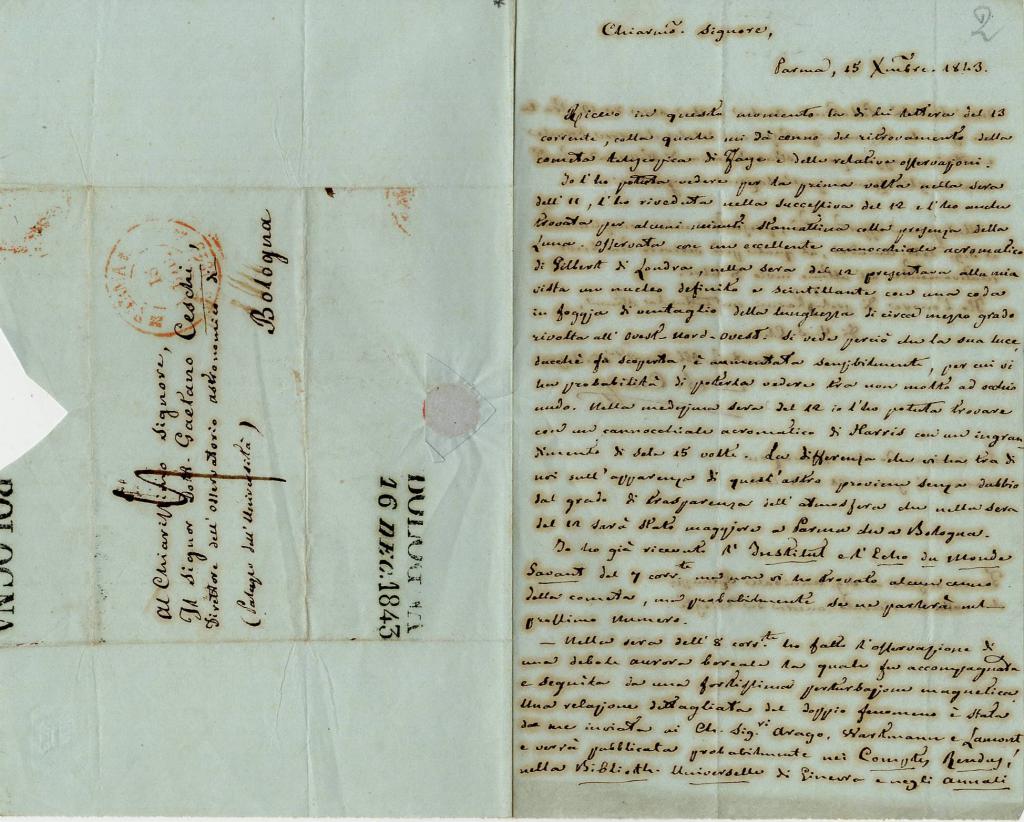 Chiarmo. Signore,
Parma, 15 Xmbre. 1843.
Ricevo in questo momento la di lei lettera del 13
corrente, colla quale mi dà cenno del ritrovamento della
cometa telescopica di Faye e delle relative osservazioni.
Io l'ho potuta vedere per la prima volta nella sera
dell' 11, l'ho riveduta nella successiva del 12 e l'ho anche
trovata per alcuni minuti stamattina colla presenza della
Luna. Osservata con un eccellente cannocchiale acromatico
di Gilbert di Londra, nella sera del 12 presentava alla mia
vista un nucleo definito e scintillante con una coda
in foggia di ventaglio della lunghezza di circa mezzo grado
rivolta all' Ovest-Nord-Ovest. Si vede perciò che la sua luce,
dacchè fu scoperta, è aumentata sensibilmente, per cui vi
ha probabilità di poterla vedere tra non molto ad occhio
nudo. Nella medesima sera del 12 io l'ho potuta trovare
con un cannocchiale acromatico di Harris con un ingran
dimento di sole 15 volte. La differenza che vi ha tra di
noi sull' apparenza di quest' astro proviene senza dubbio
dal grado di trasparenza dell' atmosfera che nella sera
del 12 sarà stato maggiore a Parma che a Bologna.
Io ho già ricevuto l' Institut e l' Echo du Monde
Savant del 7 corr.te ma non vi ho trovato alcun cenno
della cometa, ma probabilmente se ne parlerà nel
prossimo numero.
— Nella sera dell' 8 corr.te ho fatto l'osservazione di
una debole aurora boreale la quale fu accompagnata
e seguita da una fortissima perturbazione magnetica.
Una relazione dettagliata del doppio fenomeno è stata
da me inviata ai Ch. Sig.ri Arago, Wartmann e Lamont
e verrà pubblicata probabilmente nei Comptes Rendus,
nella Biblioth. Universelle di Ginevra e negli Annali
2
Al Chiarissimo Signore,
Il Signor Dott. Gaetano Ceschi,
Direttore dell' Osservatorio astronomico di
Bologna
(Palazzo dell' Università)
BOLOGNA
16 DEC. 1843
BOLOGNA